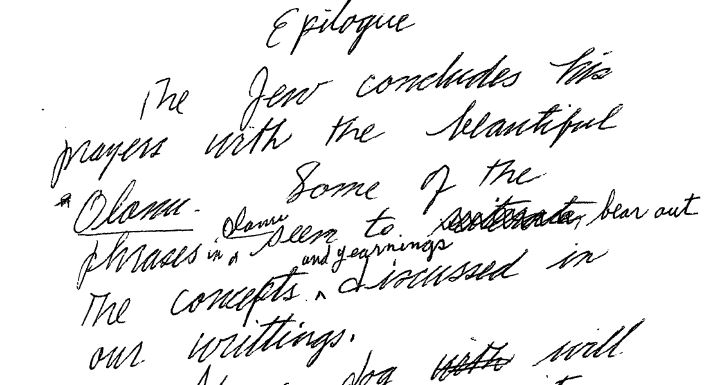 Epilogue
The Jew concludes his
prayers with the beautiful
* Olanu. Some of the
phrases in Olanu seem to bear out
the concepts ^ and yearnings discussed in
our writtings.
will